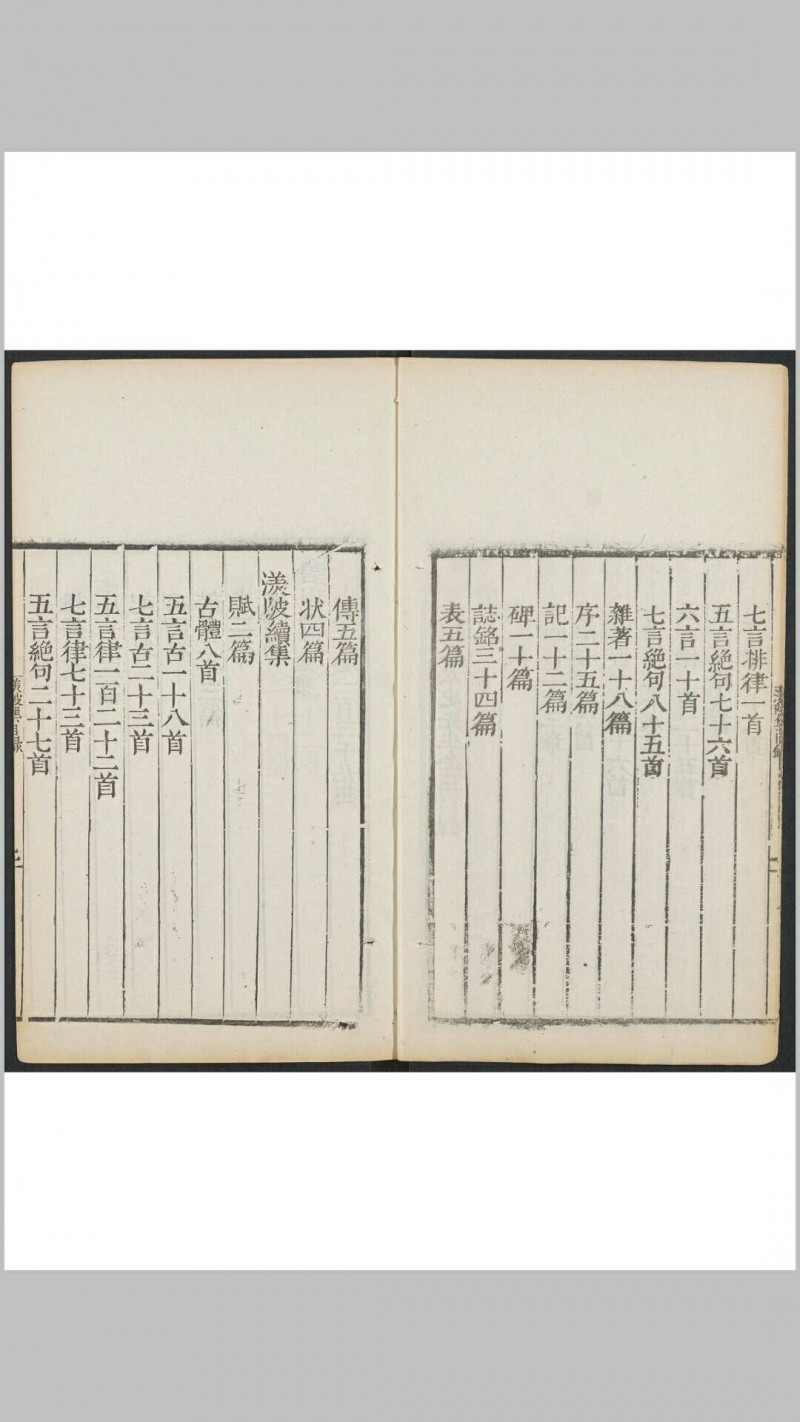 七言排律一首
五言絶句七十六首
六言一十首
七言絶句八十五首
雜著一十八篇
序二十五篇
記一十二篇
碑一十篇
誌銘三十四篇
表五篇
傳五篇
狀四篇
渼陂續集
賦二篇
古體八首
五言古一十八首
七言古二十三首
五言律一百二十二首
七言律七十三首
五言絶句二十七首